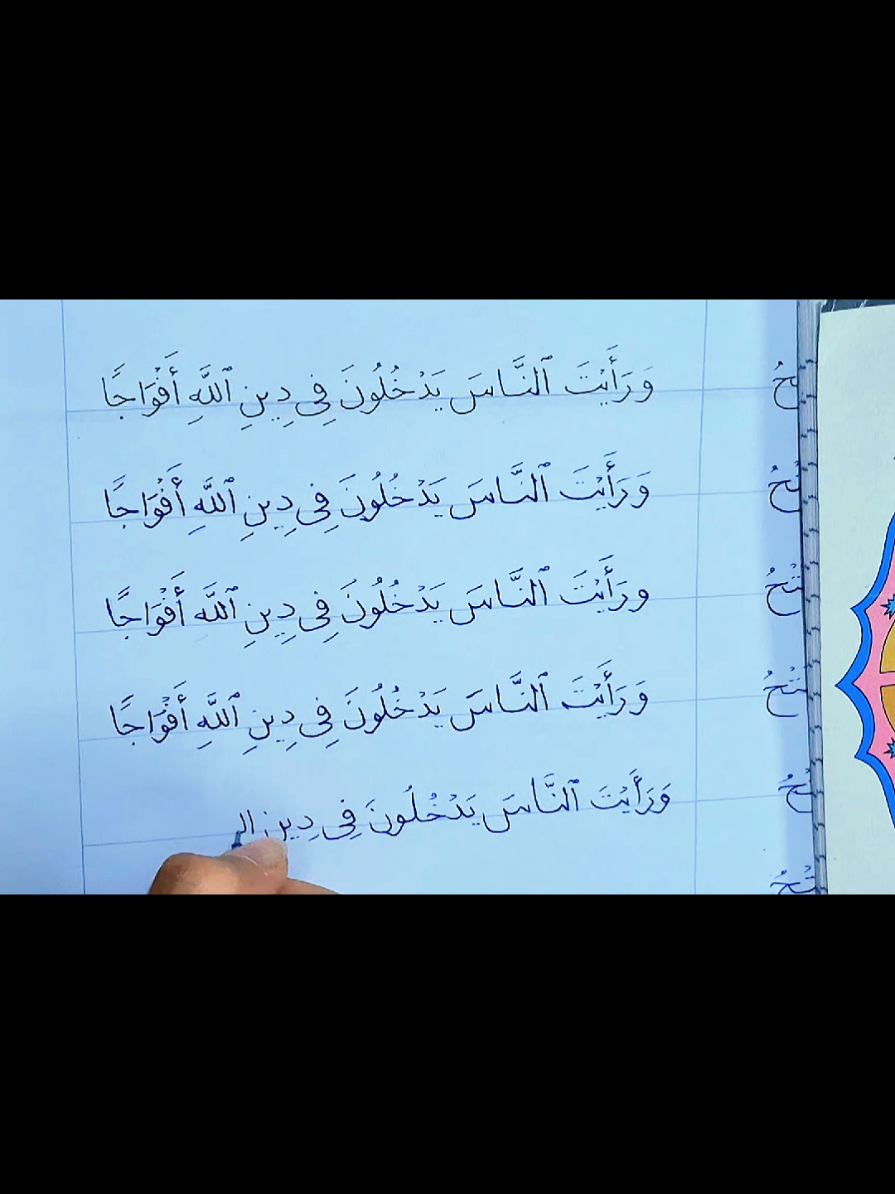 وَرَأَيْتَ ٱلنَّاسَ يَدْخُلُونَ فِى دِينِ ٱللَّهِ أَفْوَاجًا
وَرَأَيْتَ ٱلنَّاسَ يَدْخُلُونَ فِى دِينِ ٱللَّهِ أَفْوَاجًا
ورَأَيْتَ ٱلنَّاسَ يَدْخُلُونَ فِى دِينِ ٱللَّهِ أَفْوَاجًا
وَرَأَيْتَ ٱلنَّاسَ يَدْخُلُونَ فِى دِينِ ٱللَّهِ أَفْوَاجًا
وَرَأَيْتَ ٱلنَّاسَ يَدْخُلُونَ فِى دِينِ